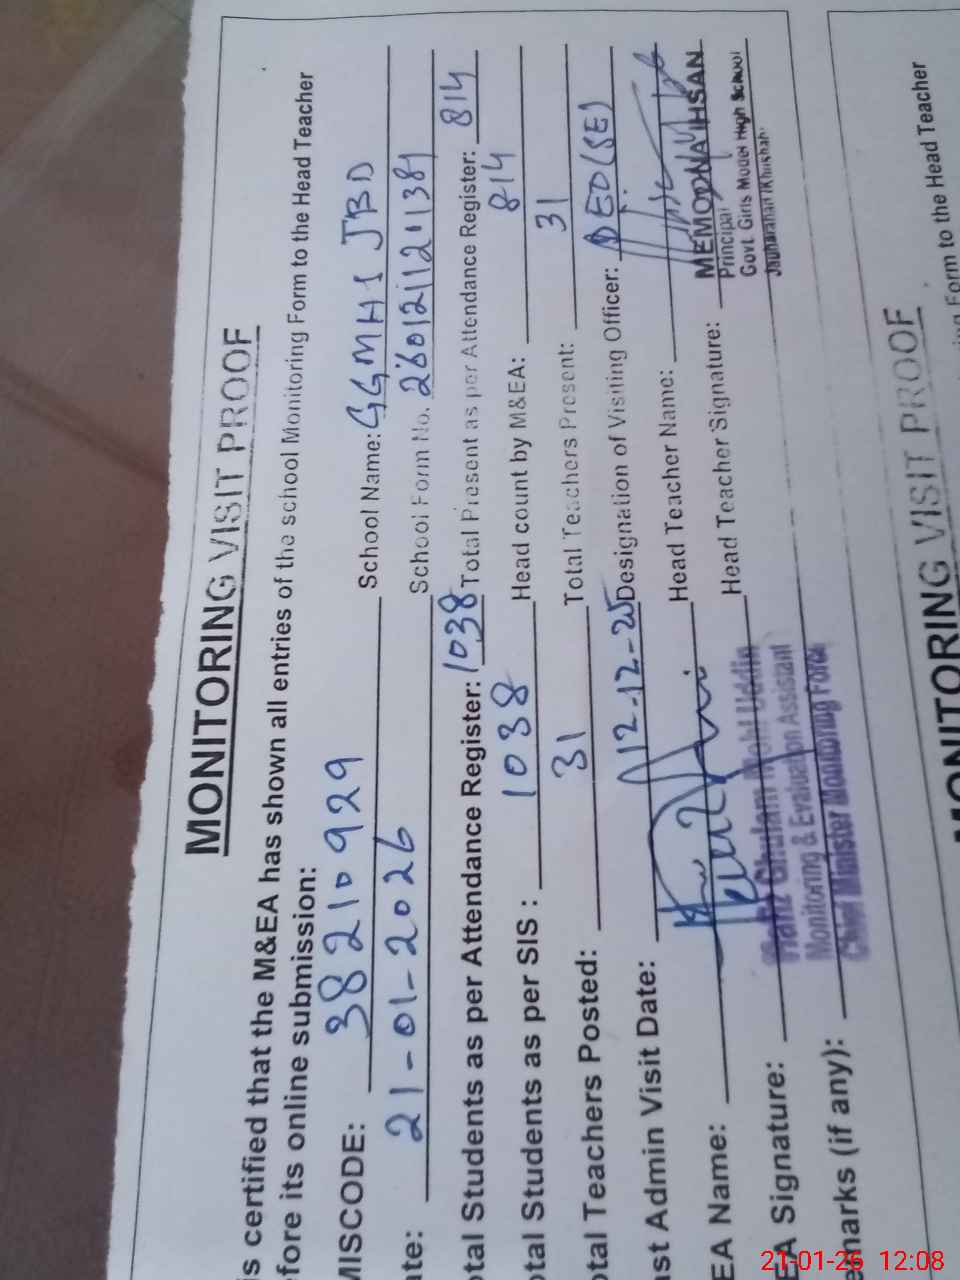 MONITORING VISIT PROOF
is certified that the M&EA has shown all entries of the school Monitoring Form to the Head Teacher
fore its online submission:
MISCODE: 38210929 School Name: GGMHS JBD
ate: 21-01-2026 School Form No.
otal Students as per Attendance Register: 1038 Total Present as per Attendance Register: 814
otal Students as per SIS: 1038 Head count by M&EA: 814
otal Teachers Posted: 31 Total Teachers Present: 31
ast Admin Visit Date: 12-12-25 Designation of Visiting Officer:
EA Name: Head Teacher Name:
EA Signature: Head Teacher Signature:
marks (if any):
Hafiz Ghulam Mohi Uddin
Monitoring & Evaluation Assistant
Chief Minister Monitoring Force
MEMOONA IHSAN
Principal
Govt. Girls Model High School
Jauharabad (Khushab)
MONITORING VISIT PROOF
ing Form to the Head Teacher
21-01-26 12:08